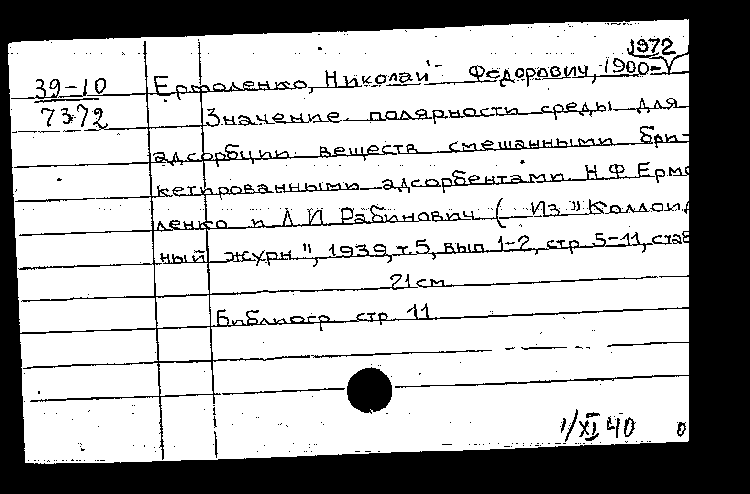 1972
39-10 Ермоленко, Николай Федорович, 1900-
7372 Значение полярности среды для
адсорбции веществ смешанными бри-
кетированными адсорбентами Н.Ф. Ермо
ленко и Л И Рабинович ( Из "Коллоид
ный журн", 1939, т.5, вып 1-2, стр 5-11, с
21 см
Библиогр стр. 11
1/XI 40 0